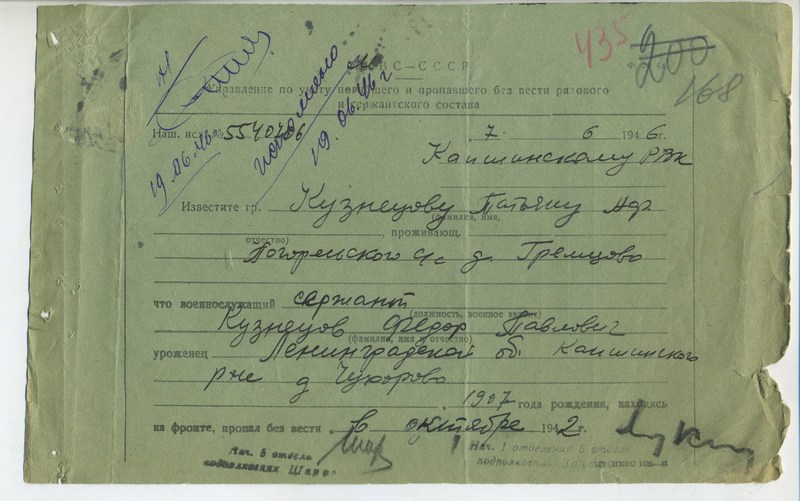 435
200
168
ВС—СССР
Управление по учету погибшего и пропавшего без вести рядового
и сержантского состава
исполнено
19.06.46 г
19.06.46
Наш. исх. № 5540706 7 6 1946 г.
Капшинскому РВК
Известите гр. Кузнецову Татьяну
(фамилия, имя,
, проживающ.
отчество)
Погорельского с/с д. Гремцово
что военнослужащий сержант
(должность, военное звание)
Кузнецов Федор Павлович
(фамилия, имя и отчество)
уроженец Ленинградской об. Капшинского
р-не д Чухорово
1907 года рождения, находясь
на фронте, пропал без вести в октябре 1942 г.
Нач. 5 отдела
подполковник
Нач. 1 отделения 5 отдела
подполковник